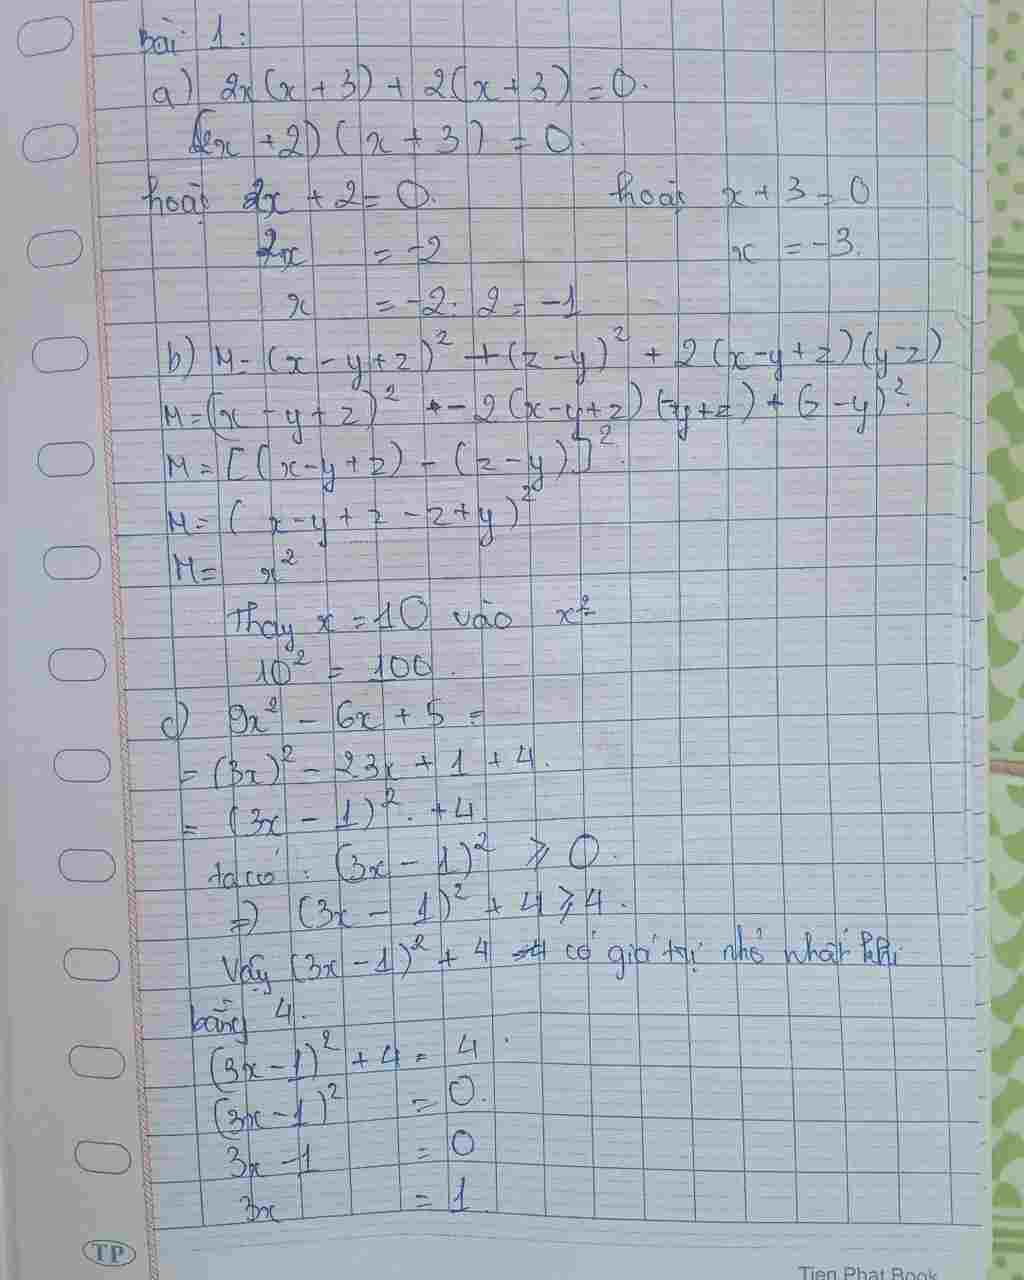 bài 1:
a) 2x(x+3) + 2(x+3) = 0.
(2x + 2)(x + 3) = 0.
hoặc 2x + 2 = 0. hoặc x + 3 = 0
2x = -2 x = -3.
x = -2 : 2 = -1
b) M = (x - y + z)² + (z - y)² + 2(x - y + z)(y - z)
M = (x - y + z)² - 2(x - y + z)(-y + z) + (z - y)².
M = [(x - y + z) - (z - y)]².
M = (x - y + z - z + y)²
M = x²
Thay x = 10 vào x²
10² = 100.
c) 9x² - 6x + 5 =
= (3x)² - 2 3x + 1 + 4.
= (3x - 1)² . + 4
ta có : (3x - 1)² ≥ 0.
=> (3x - 1)² + 4 ≥ 4.
Vậy (3x - 1)² + 4 có giá trị nhỏ nhất khi
bằng 4.
(3x - 1)² + 4 = 4.
(3x - 1)² = 0.
3x - 1 = 0
3x = 1
TP
Tien Phat Book